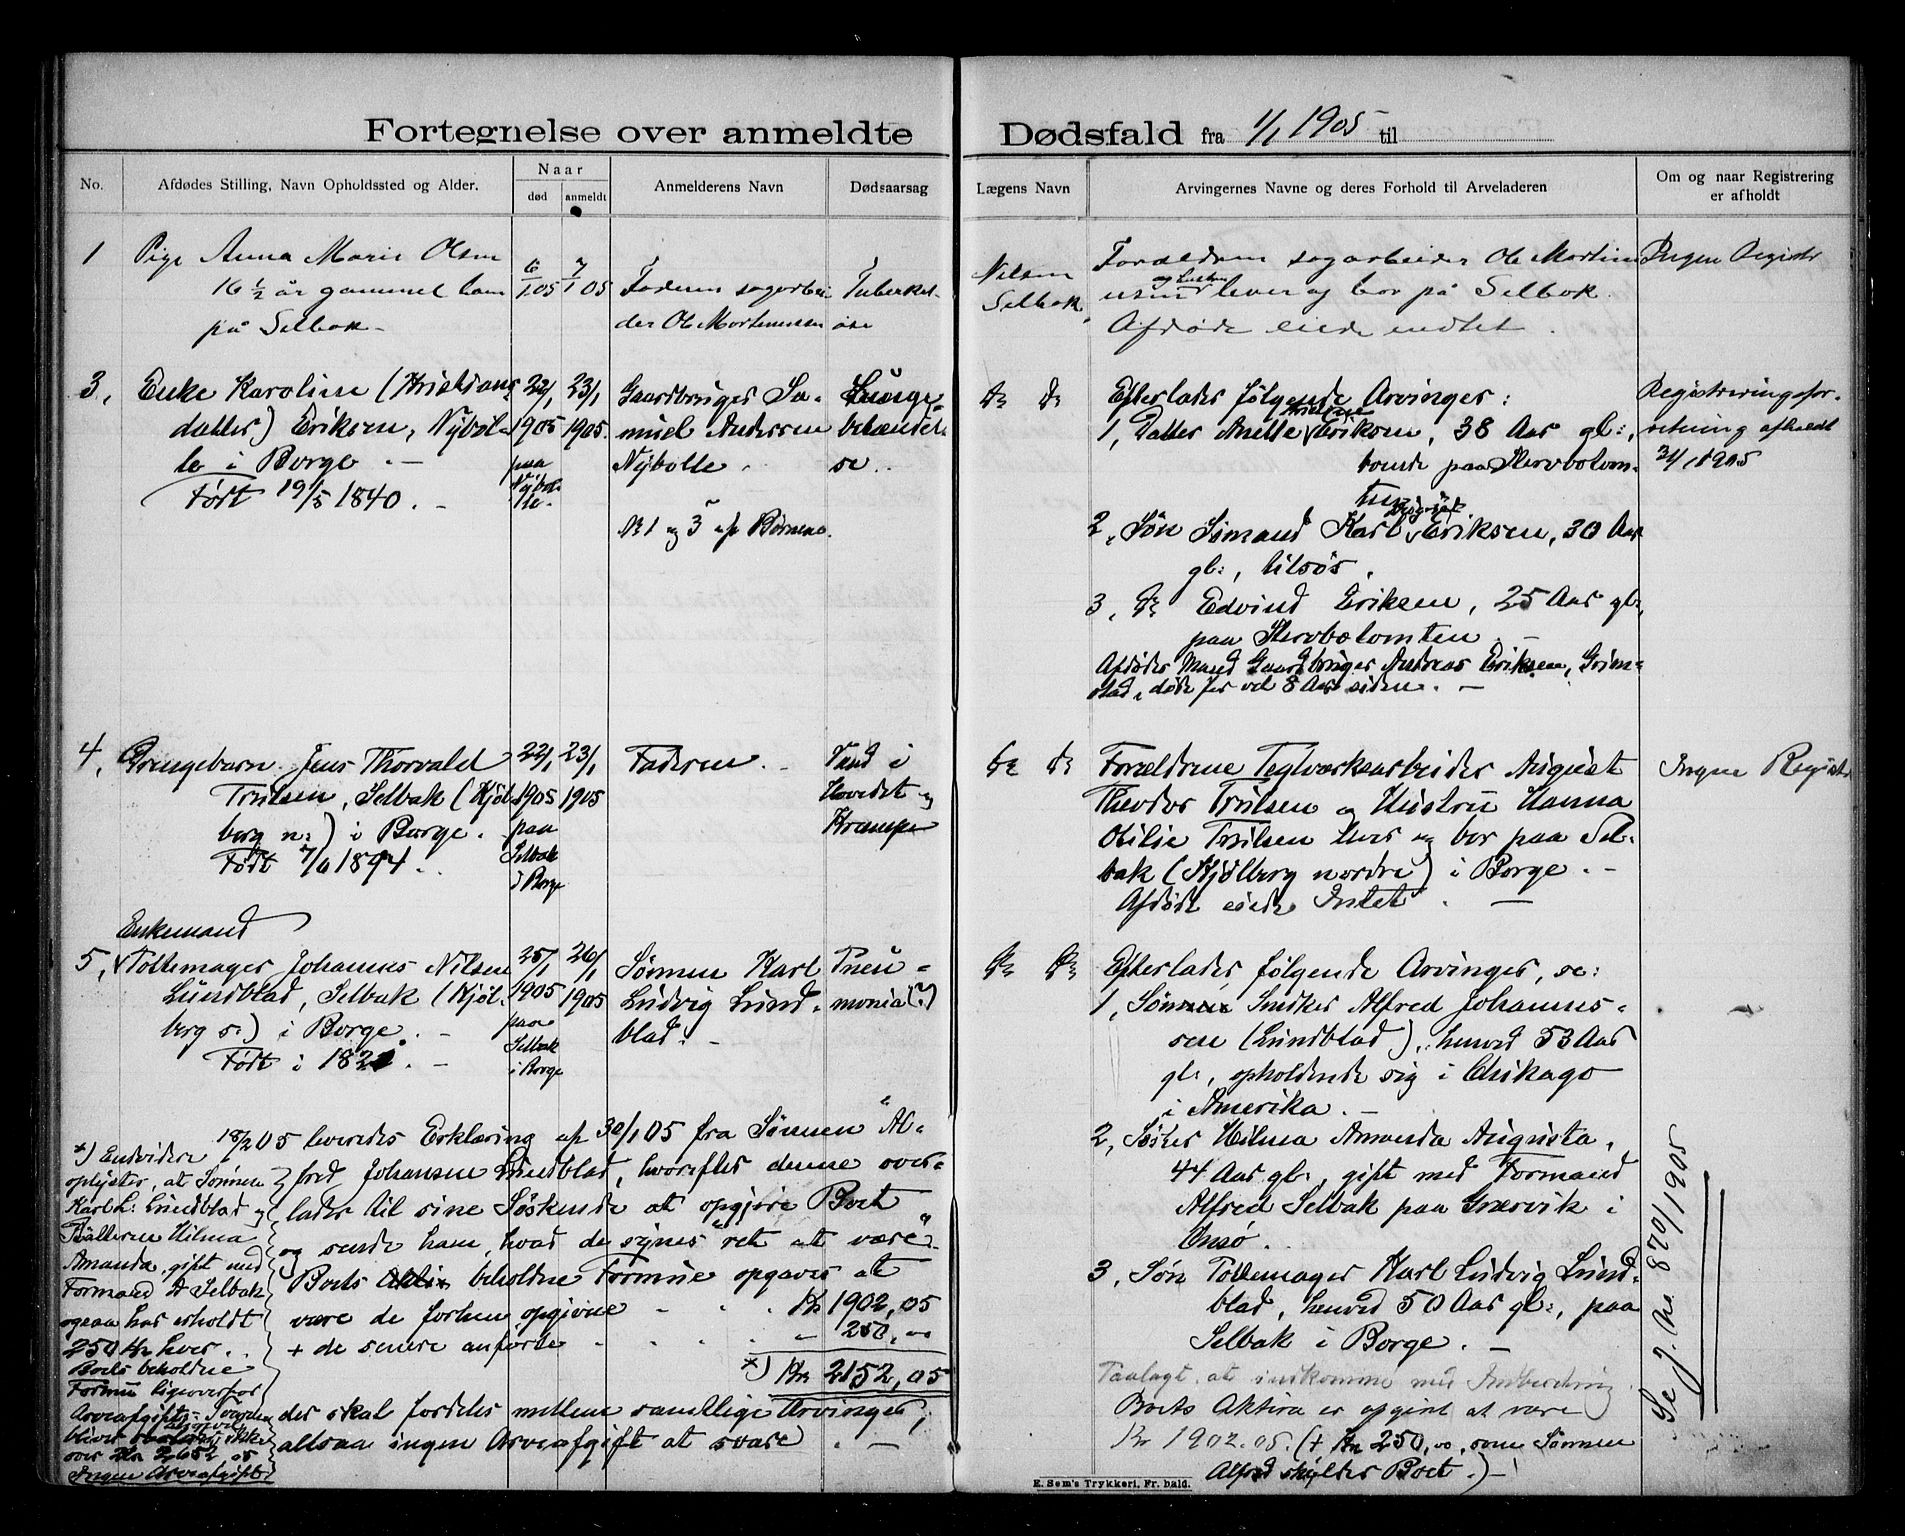 Fortegnelse over anmeldte Dødsfald fra 1/1 1905 til
No.
Afdødes Stilling, Navn Opholdssted og Alder.
Naar
død
anmeldt
Anmelderens Navn
Dødsaarsag
Lægens Navn
Arvingernes Navne og deres Forhold til Arveladeren
Om og naar Registrering
er afholdt
1
Pige Anna Marie Olsen
16 1/2 år gammel hem
på Selbak
6/1 05
7/1 05
Faderen sagarbei
der Ole Mortenussen
Tuberkel-
ose
Nilsen
Selbak
Forældrene sagarbeider Ole Martin
usen og hustru lever og bor på Selbak.
Afdøde eiede indtet.
Ingen Registr
3,
Enke Karoline (Kristians
datter) Eriksen, Nybøl-
le i Borge. -
Født 19/5 1840. -
22/1
1905
paa
Nybøl-
le.
23/1
1905.
Gaardbruger Sa-
muel Andersen
Nybølle.
No 1 og 3 af Børnene.
Lunge-
betændel-
se.
Do Do
Efterlader følgende Arvinger:
1, Datter Anette Eriksen, 38 Aar gl:,
boende paa Stervbotom-
ten
2, Søn Sømand Karl Eriksen, 30 Aar
gl:, tilsøs.
3, Do Edvind Eriksen, 25 Aar gl:,
paa Stervbotomten. -
Afdødes Mand Gaardbruger Andreas Eriksen, Grim-
stad, døde for vel 8 Aar siden. -
Registreringsfor-
retning afholdt
1905
4,
Drengebarn Jens Thorvald
Trulsen, Selbak (Kjøl-
berg n:) i Borge.
Født 1894.
22/1
1905
paa
Selbak
i Borge
23/1
1905
Faderen. -
Vand i
Hovedet og
Krampe
Do Do
Forældrene Teglværksarbeider August
Theodor Trulsen og Hustru Hanna
Otilie Trulsen lever og bor paa Sel-
bak (Kjølberg nordre) i Borge. -
Afdøde eiede Intet. -
Ingen Registr
Enkemand
5,
Pottemager Johannes Nilsen
Lundblad, Selbak (Kjøl-
berg s:) i Borge. -
Født i 1821. -
25/1
1905
paa
Selbak
i Borge
26/1
1905
Sønnen Karl
Ludvig Lund-
blad. -
Pneu-
monia(?)
Do Do
Efterlader følgende Arvinger, se:
1, Søn Snedker Alfred Johannes-
sen (Lundblad), henved 53 Aar
gl:, opholdende sig i Chikago
i Amerika. -
2, Søster Hilma Amanda Augusta,
44 Aar gl:, gift med Formand
Alfred Selbak paa Græsvik i
Onsø.
3, Søn Pottemager Karl Ludvig Lund-
blad, henved 50 Aar gl:, paa
Selbak i Borge. -
Paalagt at indkomme med Indberetning
Boets Aktiva er opgivet at være
Kr 1902.05. (+ Kr 250,00, som Sønnen
Alfred skylder Boet.) -
Se J. No. 870/1905
18/2 05 leveredes Erklæring af 30/1 05 fra Sønnen Al-
fred Johansen Lundblad, hvorefter denne over-
lader til sine Søskende at opgjøre Boet
og sende ham, hvad de "synes ret at være".
Boets beholdne Formue opgaves at
være de forhen opgivne - - Kr 1902,05
+ de senere anførte - - - - 250,00
*) Kr 2152,05
der skal fordeles mellem samtlige Arvinger,
altsaa ingen Arveafgift at svare. -
*) Endvidere
oplyster, at Sønnen
Karl L: Lundblad og
Datteren Hilma
Amanda, gift med
Formand A Selbak
ogsaa har erholdt
250 Kr hver.
Boets beholdne
Formue ligeoverfor
Arveafgifts-
bliver ikke
over Kr 2652,05
Ingen Arveafgift
E. Sem's Trykkeri, Fr. hald.